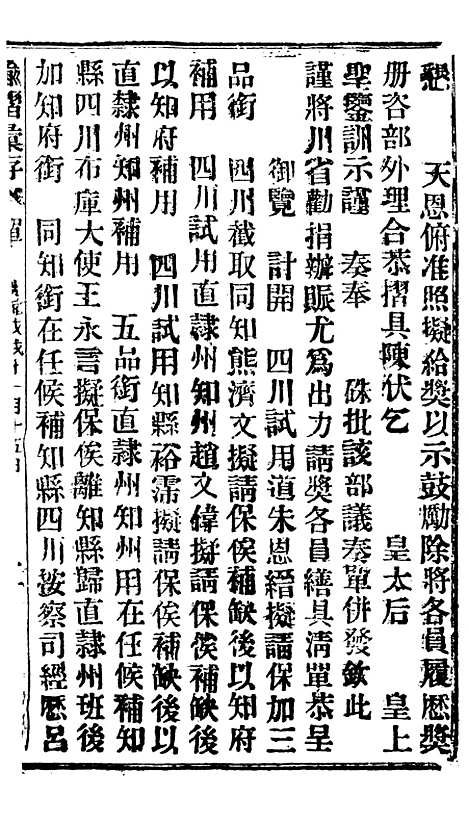 懇　天恩俯准照擬給獎以示鼓勵除將各員履歷獎
册咨部外理合恭摺具陳伏乞　皇太后　皇上
聖鑒訓示謹　奏奉　硃批該部議奏單併發欽此
謹將川省勸捐辦賑尤爲出力請獎各員繕具淸單恭呈
御覽　計開　四川試用道朱恩縉擬請保加三
品銜　四川截取同知熊濟文擬請保俟補缺後以知府
補用　四川試用直隸州知州趙文偉擬請保俟補缺後
以知府補用　四川試用知縣裕霈擬請保俟補缺後以
直隸州知州補用　五品銜直隸州知州用在任候補知
縣四川布庫大使王永言擬保俟離知縣歸直隸州班後
加知府銜　同知銜在任候補知縣四川按察司經歷呂
諭摺彙存